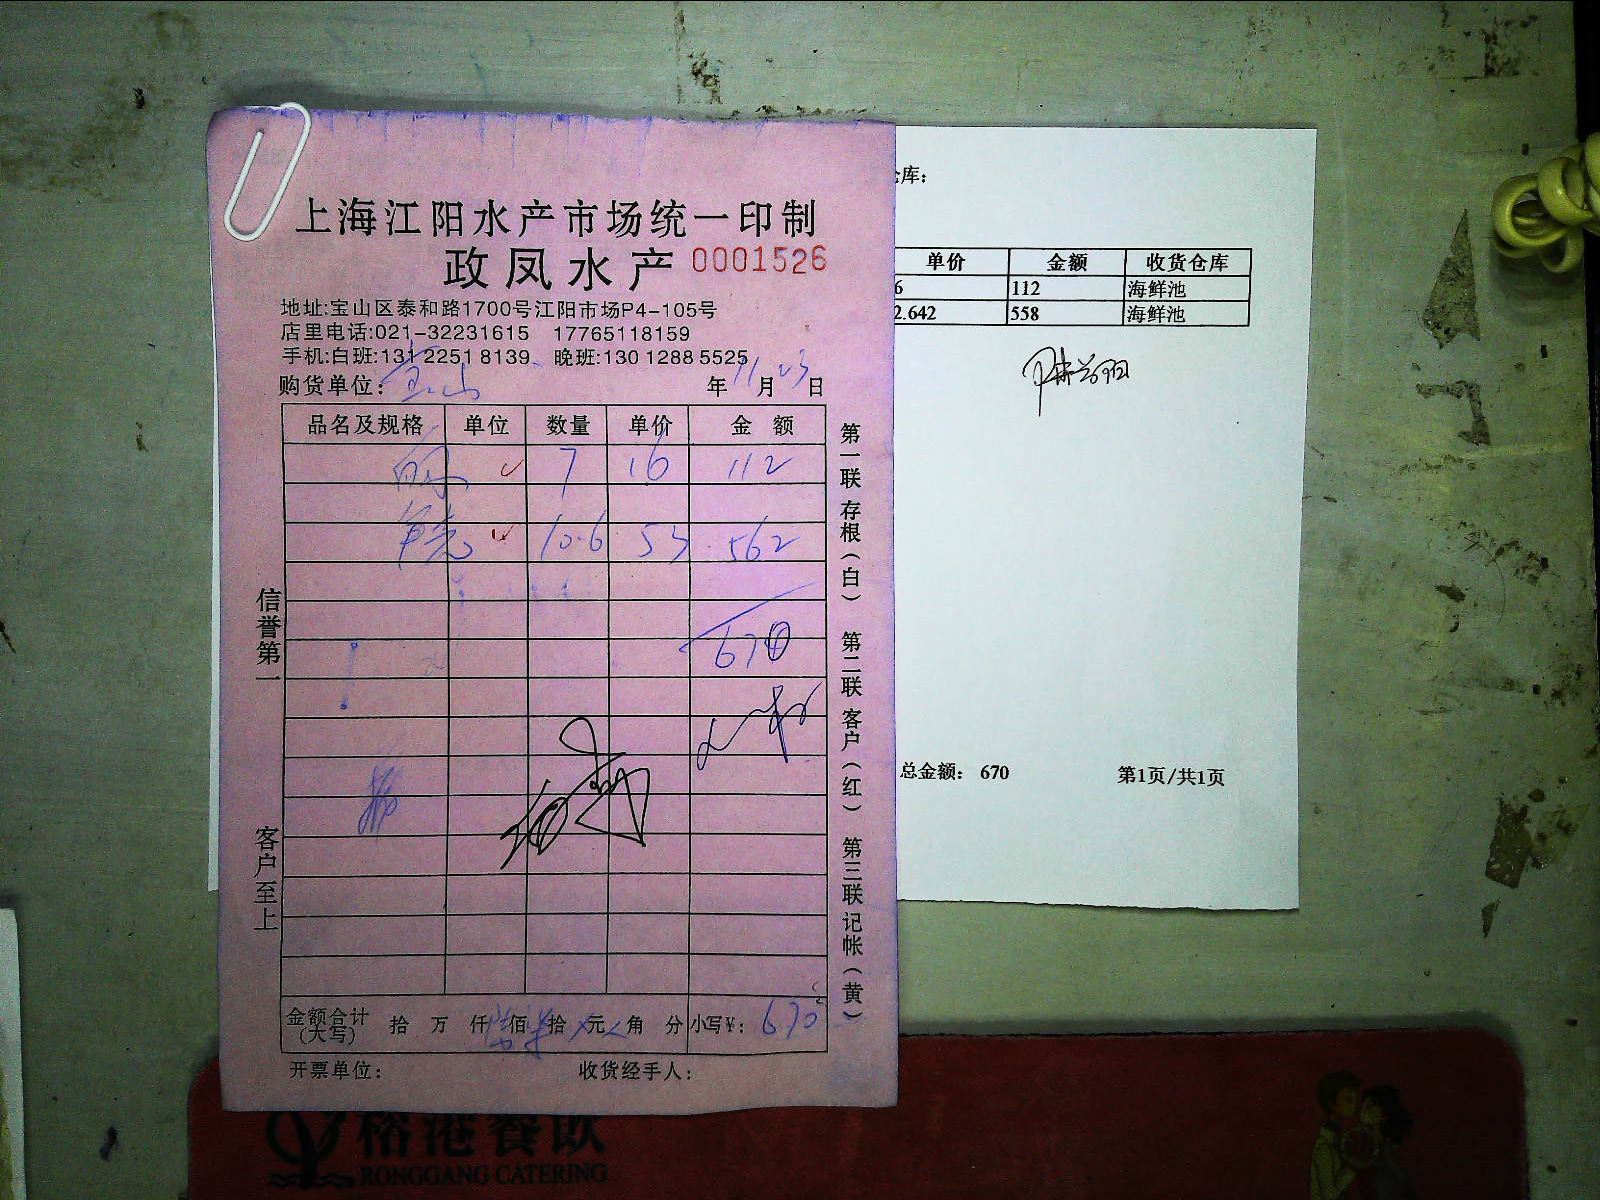 上海江阳水产市场统一印制
政凤水产 0001526
地址:宝山区泰和路1700号江阳市场P4-105号
店里电话:021-32231615 17765118159
手机:白班:131 2251 8139 晚班:130 1288 5525
购货单位: 宝山 年 11 月 23 日
品名及规格 单位 数量 单价 金额
7 16 112
10.6 53 562
670
金额合计(大写) 拾 万 仟 佰 拾 元 角 分 小写¥: 670
开票单位: 收货经手人:
信誉第一
客户至上
第一联存根(白) 第二联客户(红) 第三联记帐(黄)
仓库:
单价 金额 收货仓库
6 112 海鲜池
2.642 558 海鲜池
总金额: 670 第1页/共1页
榕港餐饮
RONGGANG CATERING